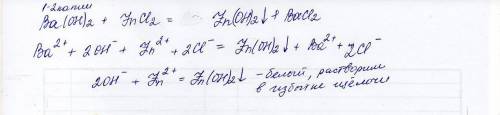 1-2 капли
Ba(OH)₂ + ZnCl₂ = Zn(OH)₂↓ + BaCl₂
Ba²⁺ + 2OH⁻ + Zn²⁺ + 2Cl⁻ = Zn(OH)₂↓ + Ba²⁺ + 2Cl⁻
2OH⁻ + Zn²⁺ = Zn(OH)₂↓ - белый, растворим
в избытке щёлочи